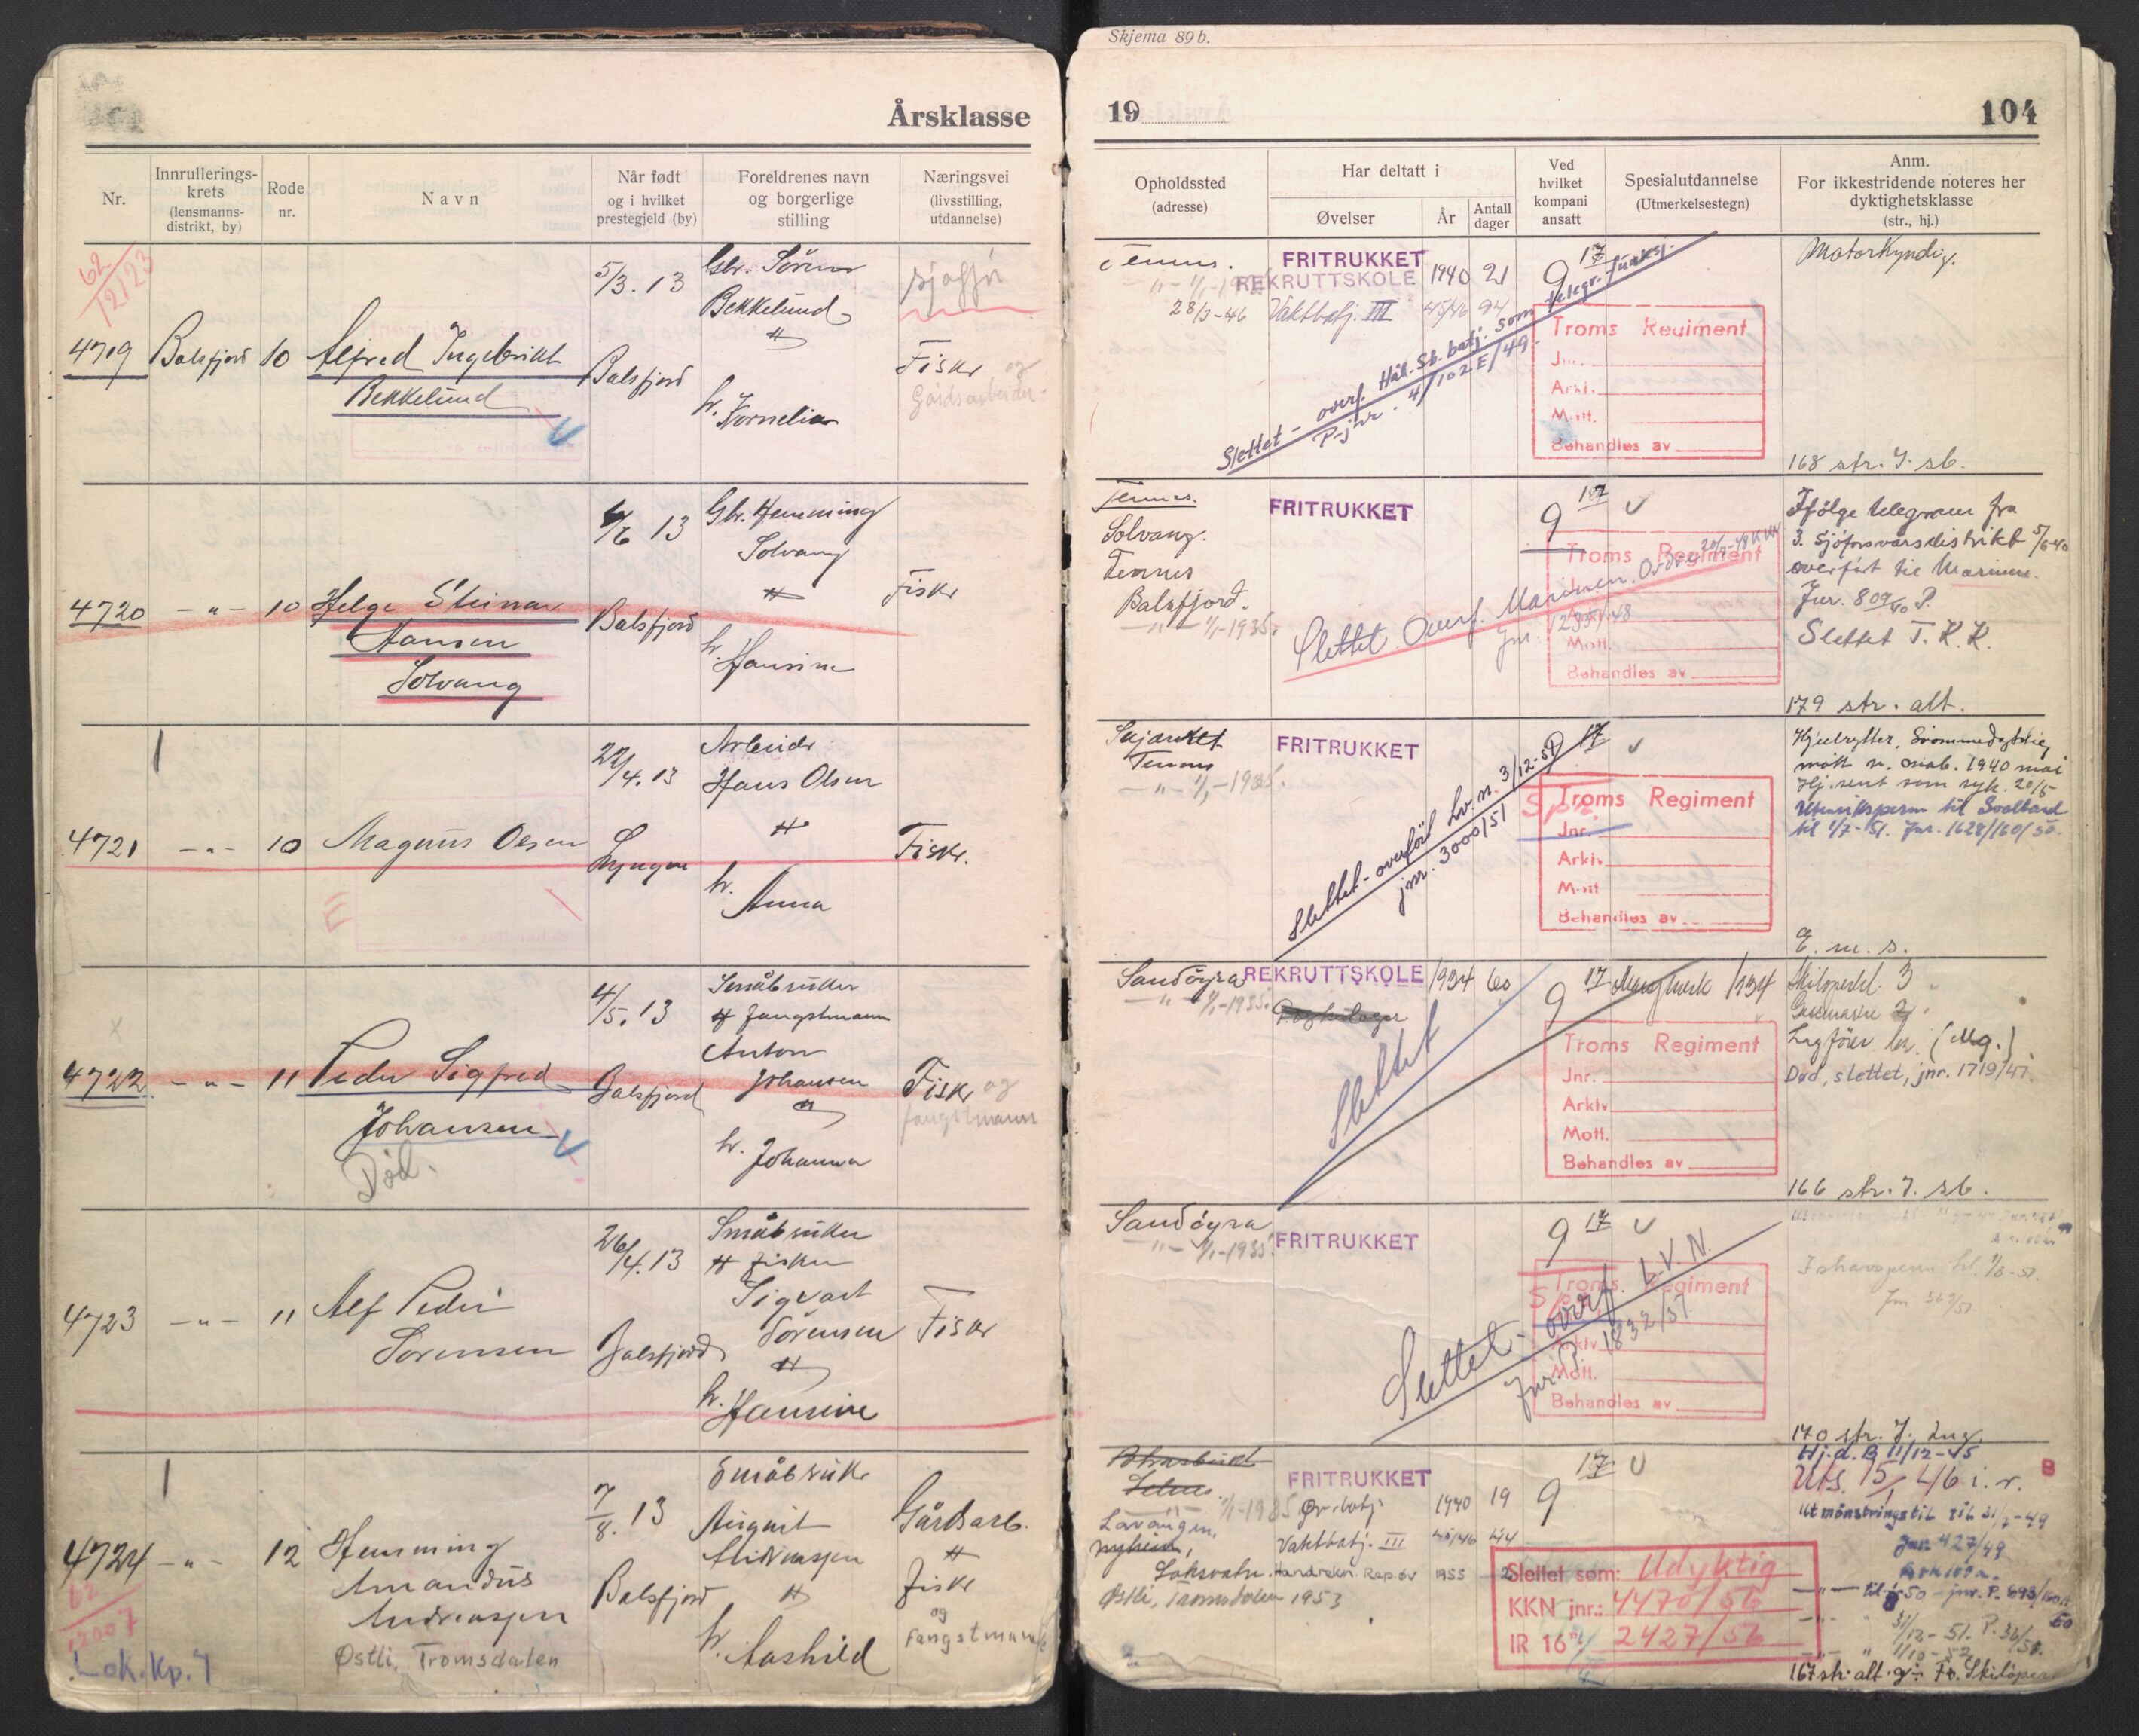 Årsklasse
Nr.
Innrullerings-
krets
(lensmanns-
distrikt, by)
Rode
nr.
Navn
Når født
og i hvilket
prestegjeld (by)
Foreldrenes navn
og borgerlige
stilling
Næringsvei
(livsstilling,
utdannelse)
62
12123
4719
Balsfjord
10
Alfred Ingebrikt
Bekkelund
5/3. 13
Balsfjord
Gbr.
Bekkelund
h.
Kornelia
sjåfför
Fisker og
Gårdsarbeider
4720
-"-
10
Helge Steinar
Hansen
Solvang
6/6 13
Balsfjord
Gbr. Hemming
Solvang
h.
Hansine
Fisker
4721
-"-
10
Magnus Olsen
E
22/4. 13
Lyngen
Arbeider
Hans Olsen
h.
Anna
Fisker.
x
4722
-"-
11
Peder Sigfred
Johansen
Død.
4/5. 13
Balsfjord
Småbruker
fangstmann
Anton
Johansen
h.
Johanna
Fisker og
fangstmann
4723
-"-
11
Alf Peder
Sörensen
26/4. 13
Balsfjord
Småbruker
fisker
Sigvart
Sörensen
h.
Hansine
Fisker
4724
-"-
12
62
12007
Lok.Kp. 7
Hemming
Amandus
Andreassen
Østli, Tromsdalen
7/8. 13
Balsfjord
Småbruker
August
Andreassen
h.
Aashild
Gårdsarb.
fisker
og
Fangstmann
Skjema 89 b.
19
104
Opholdssted
(adresse)
Har deltatt i
Øvelser
År
Antall
dager
Ved
hvilket
kompani
ansatt
Spesialutdannelse
(Utmerkelsestegn)
Anm.
For ikkestridende noteres her
dyktighetsklasse
(str., hj.)
Tennes.
28/3-46
FRITRUKKET
REKRUTTSKOLE
1940
21
Vaktbatj. III
45/46
94
9 17
Slettet - overf. Hål. Sb. batj. som telegr. funksj.
P-jnr. 4/102 E/49.
Troms Regiment
Jnr.
Arkl.
Mott.
Behandles av
Motorkyndig.
168 str. I. sb.
Tennes.
Solvang.
Tennes
Balsfjord.
-"- 1/1-1935.
FRITRUKKET
9 17
Slettet. Overf. Marinen.
Jnr. 1235/48
Troms Regiment
Mott.
Behandles av
Ifölge telegram fra
3. Sjöforsvarsdistrikt 5/6-40
overfört til Marinen.
Jnr. 809/40 P.
Slettet T. K. K.
179 str. alt.
Tennes
-"- 1/1-1935.
FRITRUKKET
9 17
Slettet - overfört Lv. n. 3/12-51
jnr. 3000/51
Troms Regiment
Jnr.
Arkiv
Mott
Behandles av
Hjulrytter, Svömmedyktig
mött n. mob. 1940 mai
Hj. sent som syk. 20/5
Utenriksperm til Svalbard
til 1/7-51. Jnr. 1628/160/50.
E. m. s.
Sandöyra
-"- 1/1-1935.
REKRUTTSKOLE
1934
60
9 17
1934
Slettet
Troms Regiment
Jnr.
Arktv
Mott.
Behandles av
3
Gassmaske 2
Lagförer (Mg.)
Död, slettet, jnr. 1719/47.
166 str. I. sb.
Sandöyra
-"- 1/1-1935
FRITRUKKET
9 17
Slettet - overf. L.V.N.
Jnr. P. 1832/51
Troms Regiment
Arktv
Mott.
Behandles av
140 str. I.
Lavangen,
Nyheim,
Laksvatn.
Østli, Tromsdalen 1953
FRITRUKKET
Øv. batj.
1940
19
Vaktbatj. III
45/46
1955
9 17
Slettet som: Udyktig
KKN jnr.: 4470/56
IR 16 2427/56
Hj. d. B 11/12-45
Uts. 15/ 46 i. r.
Utmönstringstil. til 31/7-49
Jnr 427/49
1/10-52
167 str. alt.